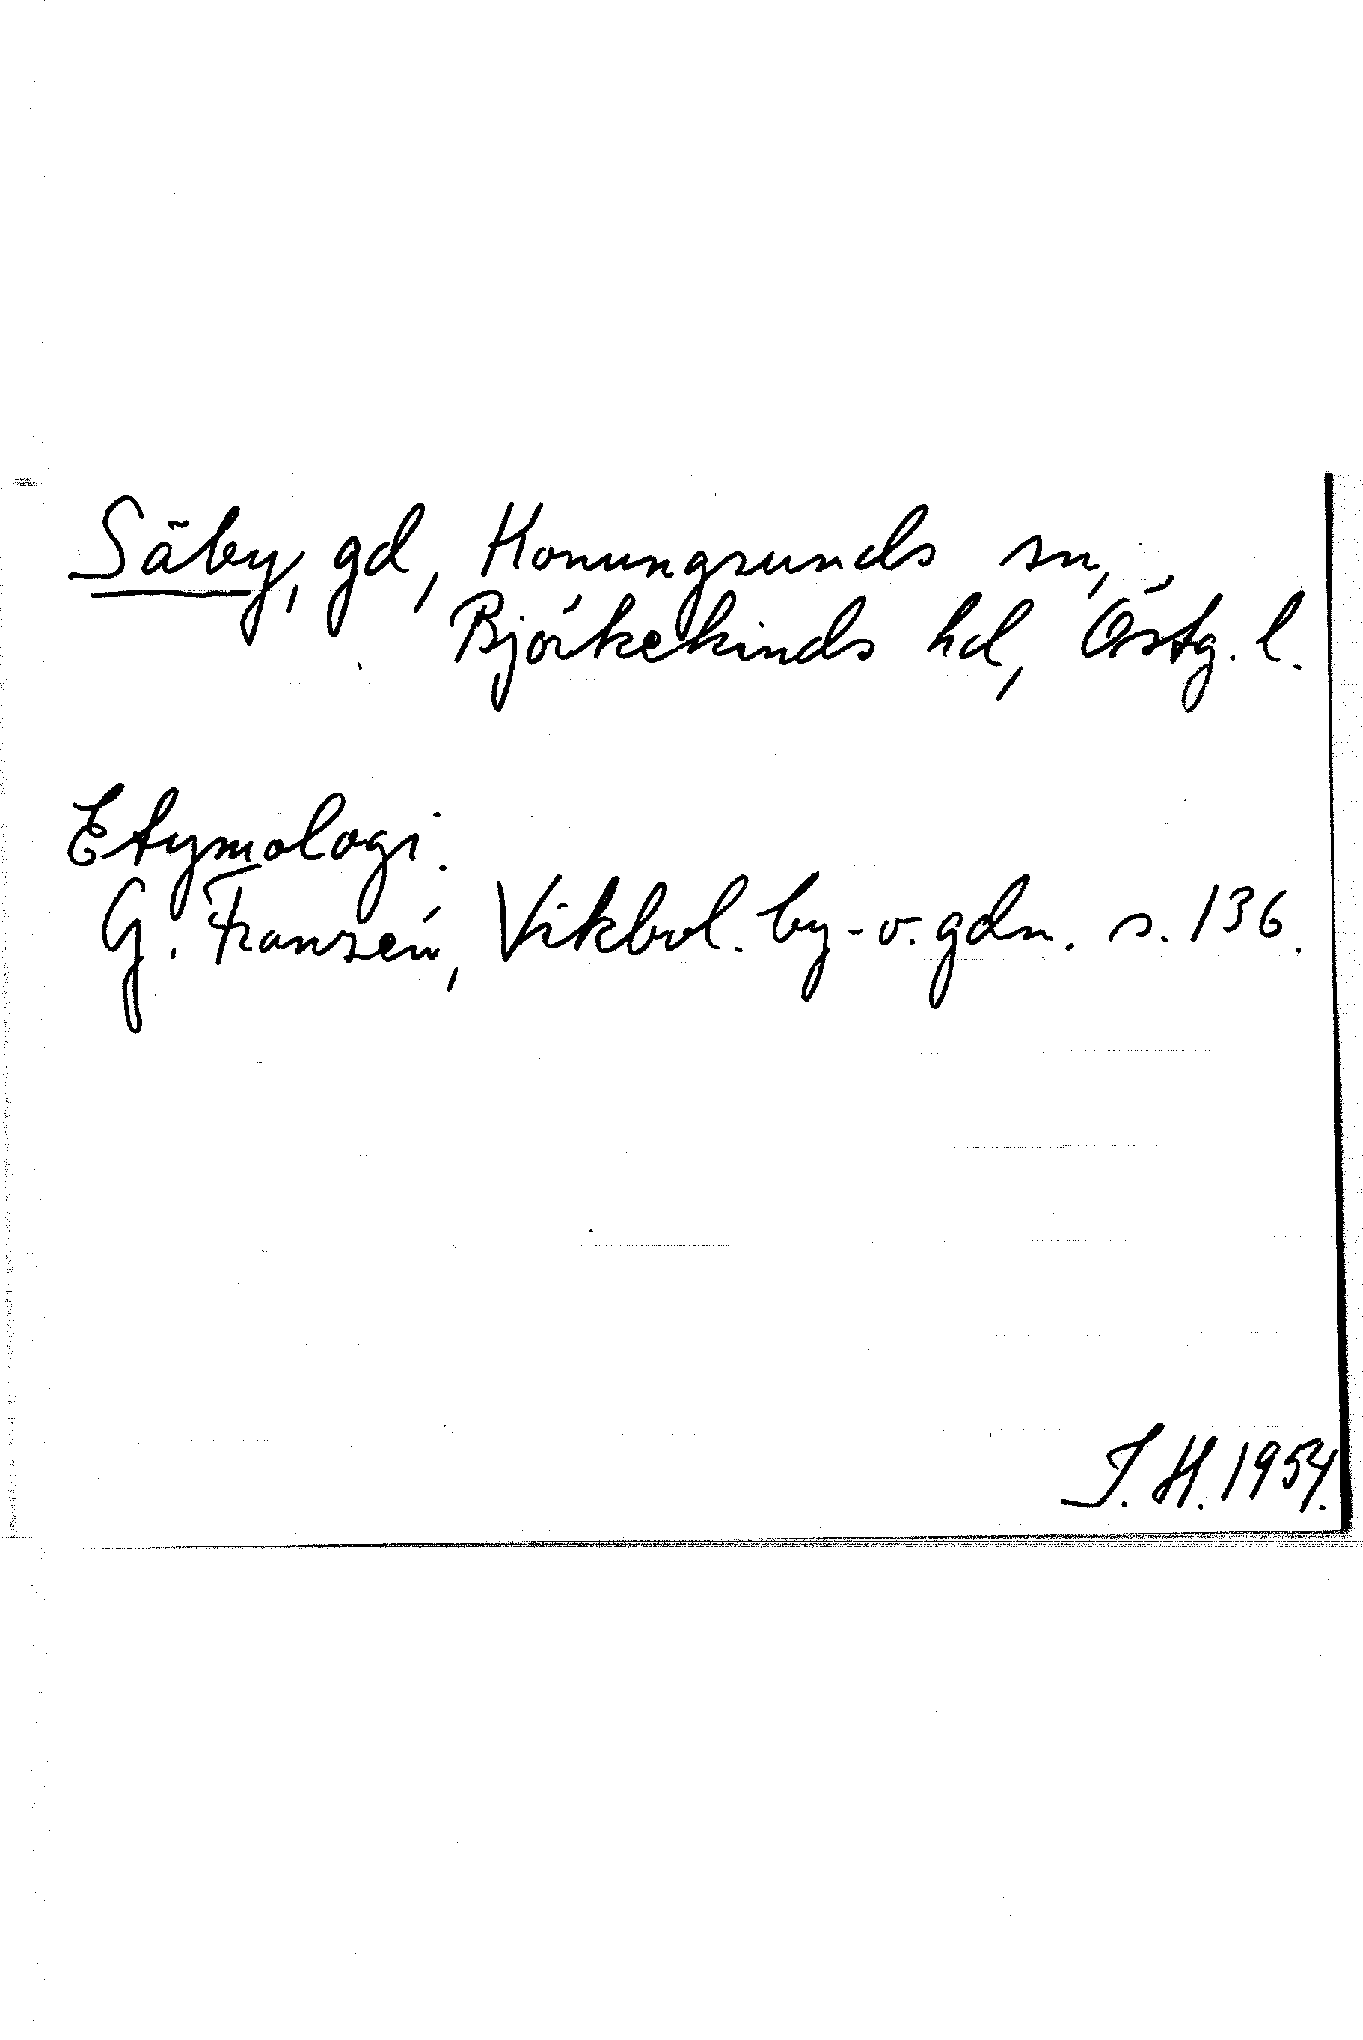 Säby, gd, Konungsunds sn,
Björkekinds hd, Östg. l.
Etymologi.
G. Franzén, Vikbol. by- o. gdn. s. 136.
J. H. 1954.